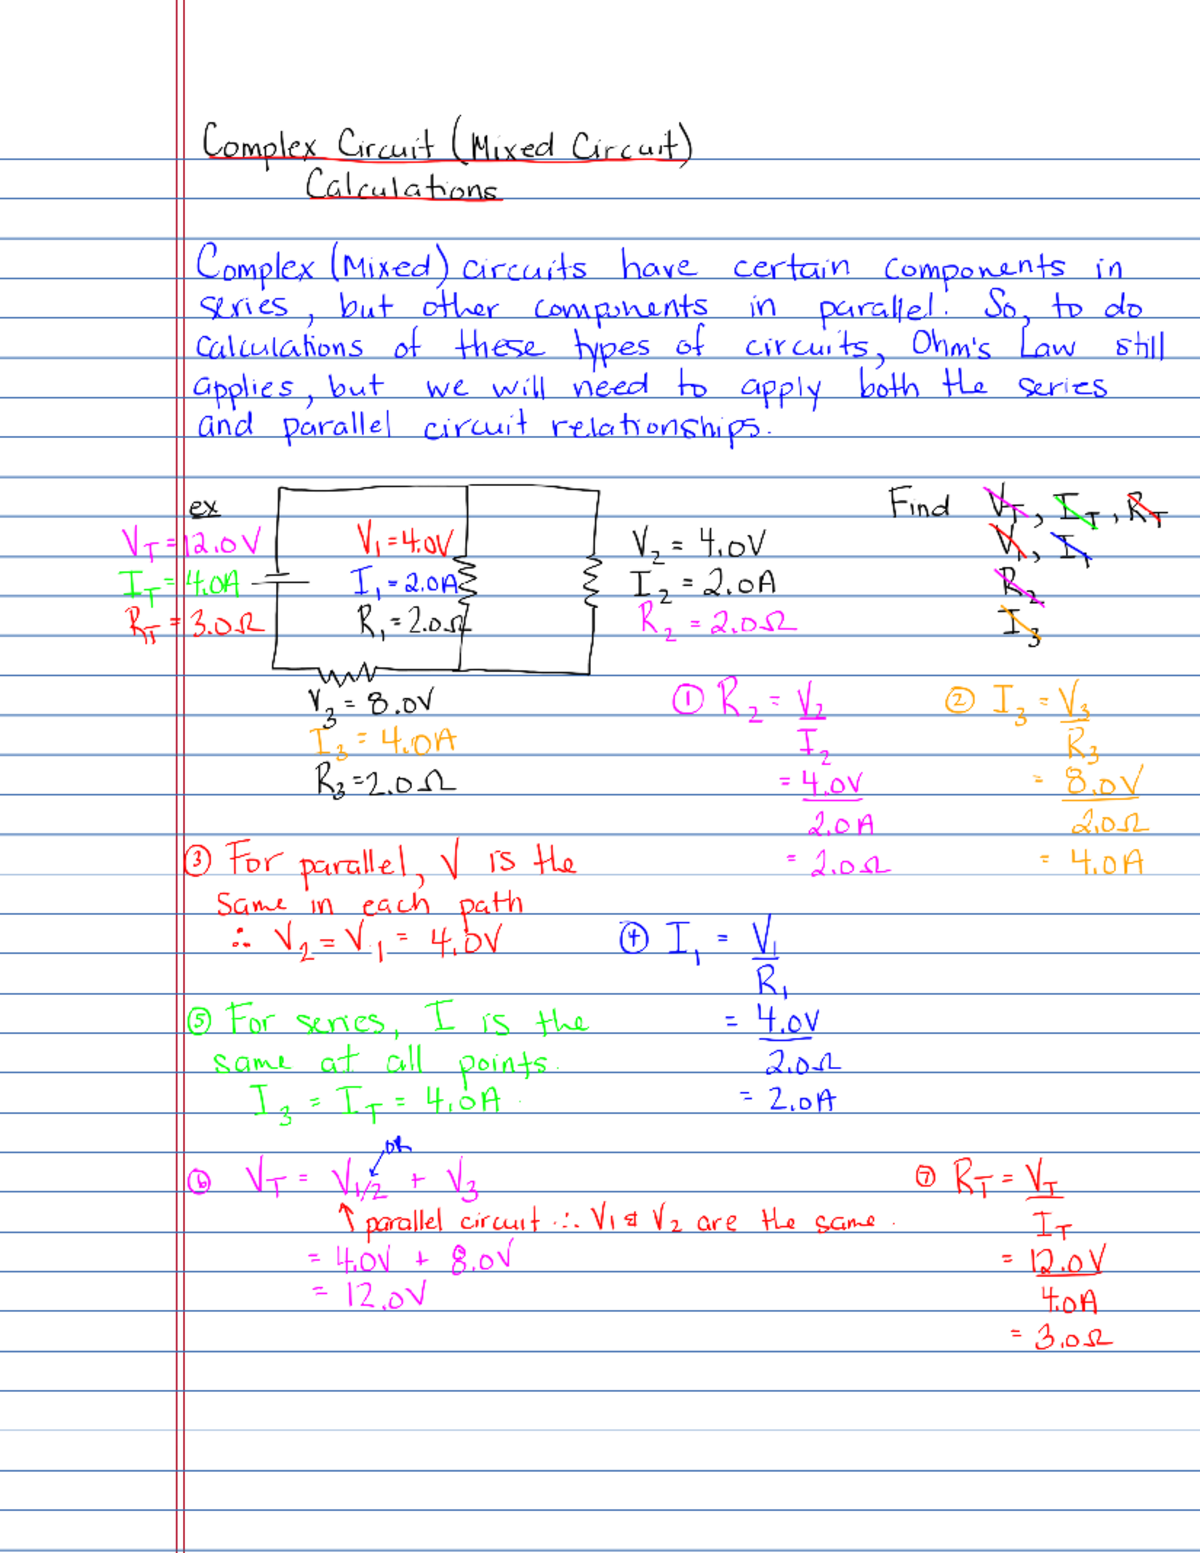 Complex Circuit (Mixed Circuit)
Calculations
Complex (Mixed) circuits have certain components in
series, but other components in parallel. So, to do
calculations of these types of circuits, Ohm's Law still
applies, but we will need to apply both the series
and parallel circuit relationships.
ex
Find V_T, I_T, R_T
V_T = 12.0V
V_1 = 4.0V
V_2 = 4.0V
V_1, I_1
I_T = 4.0A
I_1 = 2.0A
I_2 = 2.0A
R_2
R_T = 3.0Ω
R_1 = 2.0Ω
R_2 = 2.0Ω
I_3
V_3 = 8.0V
I_3 = 4.0A
R_3 = 2.0Ω
① R_2 = V_2
I_2
= 4.0V
2.0A
= 2.0Ω
② I_3 = V_3
R_3
= 8.0V
2.0Ω
= 4.0A
③ For parallel, V is the
same in each path
∴ V_2 = V_1 = 4.0V
④ I_1 = V_1
R_1
= 4.0V
2.0Ω
= 2.0A
⑤ For series, I is the
same at all points.
I_3 = I_T = 4.0A.
or
⑥ V_T = V_1/2 + V_3
↑ parallel circuit ∴ V_1 & V_2 are the same.
= 4.0V + 8.0V
= 12.0V
⑦ R_T = V_T
I_T
= 12.0V
4.0A
= 3.0Ω